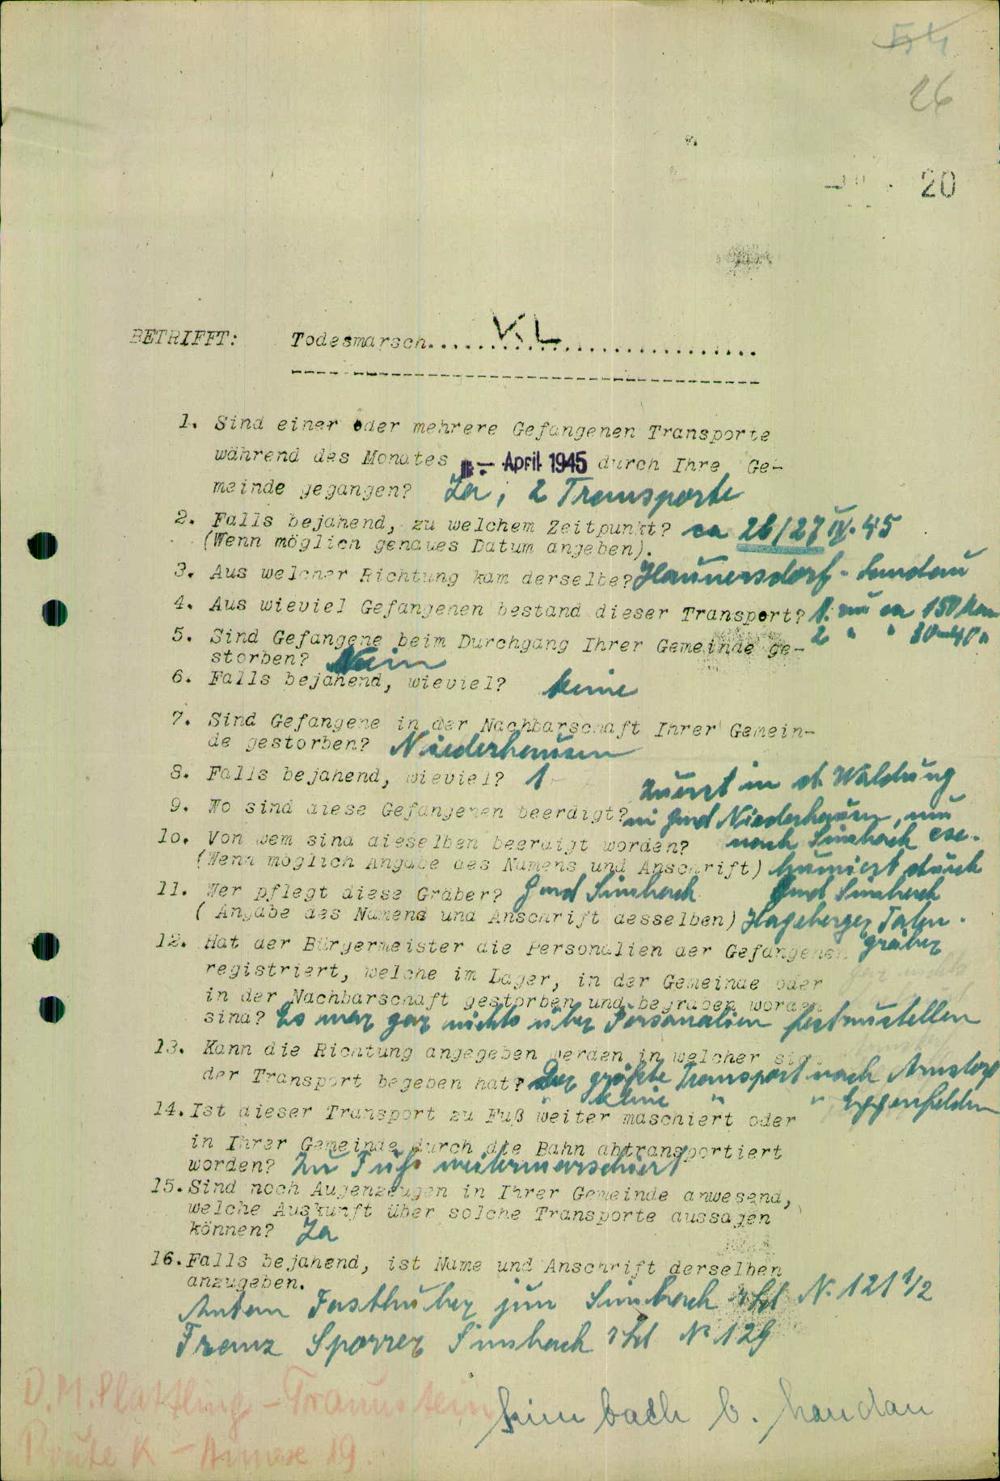 54
26
20
BETRIFFT: Todesmarsch....KL....
1. Sind einer oder mehrere Gefangenen Transporte
während des Monates April 1945 durch Ihre Ge-
meinde gegangen? Ja, 2 Transporte
2. Falls bejahend, zu welchem Zeitpunkt? ca 26/27 IV. 45
(Wenn möglich genaues Datum angeben).
3. Aus welcher Richtung kam derselbe? Haunersdorf - Landau
4. Aus wieviel Gefangenen bestand dieser Transport? 1. mit ca 150 Man
2 " " 30
5. Sind Gefangene beim Durchgang Ihrer Gemeinde ge-
storben? Nein
6. Falls bejahend, wieviel? keine
7. Sind Gefangene in der Nachbarschaft Ihrer Gemein-
de gestorben? Niederhausen
8. Falls bejahend, wieviel? 1
zuerst in d. Waldung
9. Wo sind diese Gefangenen beerdigt? in Gmd Niederhausen, nun
10. Von wem sind dieselben beerdigt worden? nach Simbach exe-
(Wenn möglich Angabe des Namens und Anschrift) humiert durch
11. Wer pflegt diese Gräber? Gmd Simbach Gmd Simbach
( Angabe des Namend und Anschrift desselben) Hageberger Toten-
gräber
12. Hat der Bürgermeister die Personalien der Gefangenen
registriert, welche im Lager, in der Gemeinde oder
in der Nachbarschaft gestorben und begraben worden
sind? Es war gar nichts über Personalien festzustellen
13. Kann die Richtung angegeben werden in welcher sich
der Transport begeben hat? Der größte Transport nach Arnstorf
" kleine " " Eggenfelden
14. Ist dieser Transport zu Fuß weiter maschiert oder
in Ihrer Gemeinde durch die Bahn abtransportiert
worden? Zu Fuß weitermarschiert
15. Sind noch Augenzeugen in Ihrer Gemeinde anwesend,
welche Auskunft über solche Transporte aussagen
können? Ja
16. Falls bejahend, ist Name und Anschrift derselben
anzugeben.
Anton Fasthuber jun Simbach N. 121 1/2
Franz Sporrer Simbach No 129
D.M. Plattling - Traunstein
Simbach b. Landau
Route K - Annexe 19.